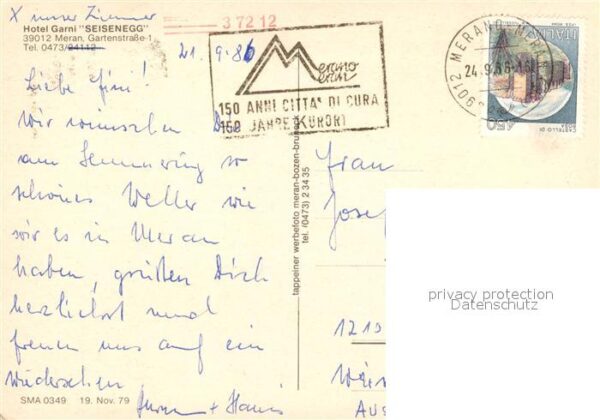 X unser Zimmer
Hotel Garni "SEISENEGG"
39012 Meran, Gartenstraße 1
Tel. 0473/24112
3 72 12
21.9.86
Merano
Meran
150 ANNI CITTA' DI CURA
150 JAHRE KURORT
39012 MERANO-MERAN
24.9.86-16
ITALIA
450
CASTELLO DI
Liebe
Wir wünschen Dir
am Semmering so
schönes Wetter wie
wir es in Meran
haben, grüßen Dich
herzlichst und
freuen uns auf ein
Wiedersehen
+ Hansi
SMA 0349 19. Nov. 79
tappeiner werbefoto meran-bozen-bruneck
tel. (0473) 2 34 35
Frau
Josef
1210
Wien
Aus
privacy protection
Datenschutz